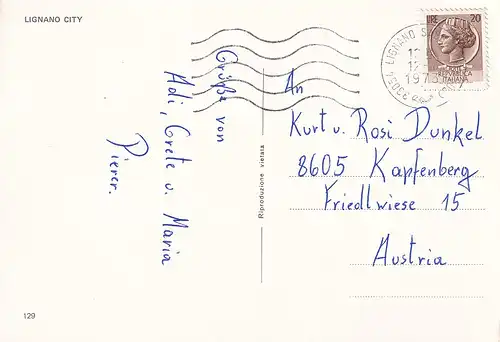 LIGNANO CITY
Grüße von
Adi, Grete u. Maria
Pierer.
Riproduzione vietata
LIRE 20
REPUBBLICA
ITALIANA
33054 LIGNANO S
An
Kurt u. Rosi Dunkel
8605 Kapfenberg
Friedlwiese 15
Austria
129